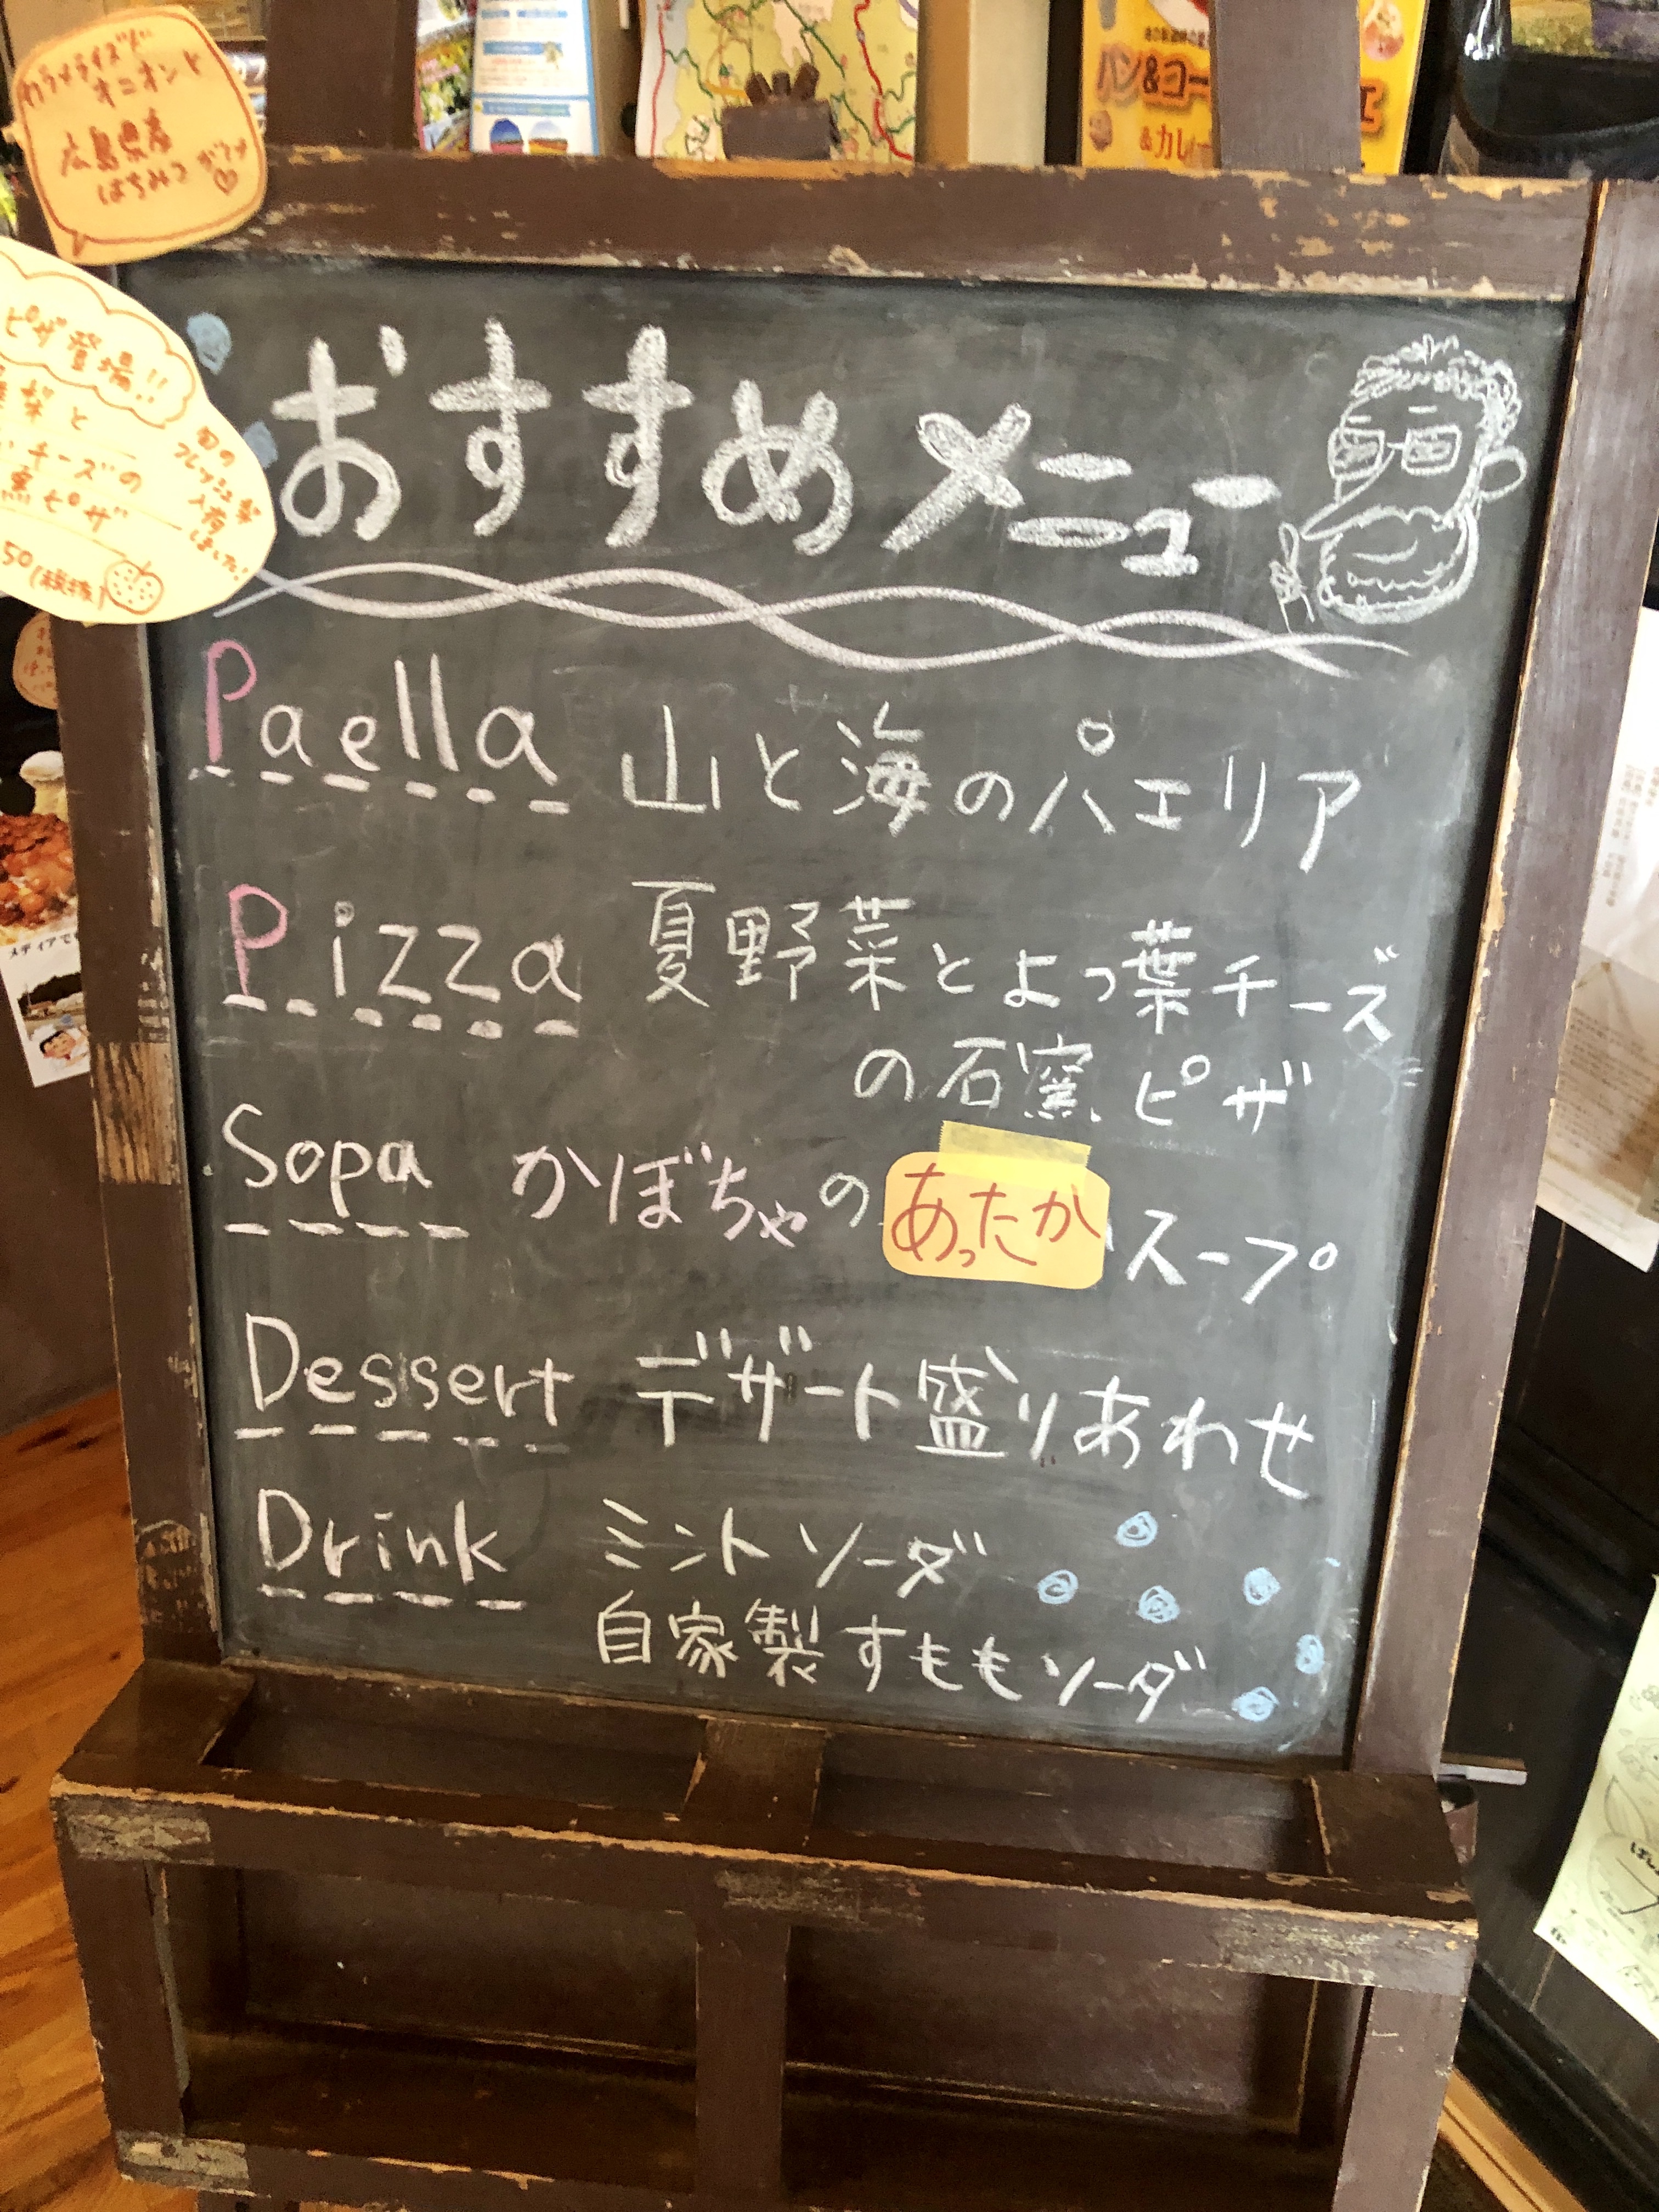 カラメライズド
オニオンと
広島県産
はちみつがけ
ピザ登場!!
と
チーズの
ピザ
50(税抜)
旬の
フレッシュ梨
入荷
しました!
おすすめメニュー
Paella 山と海のパエリア
Pizza 夏野菜とよつ葉チーズ
の石窯ピザ
Sopa かぼちゃのあったかスープ
Dessert デザート盛りあわせ
Drink ミントソーダ
自家製すももソーダ
パン&コー
&カレー
メディアで